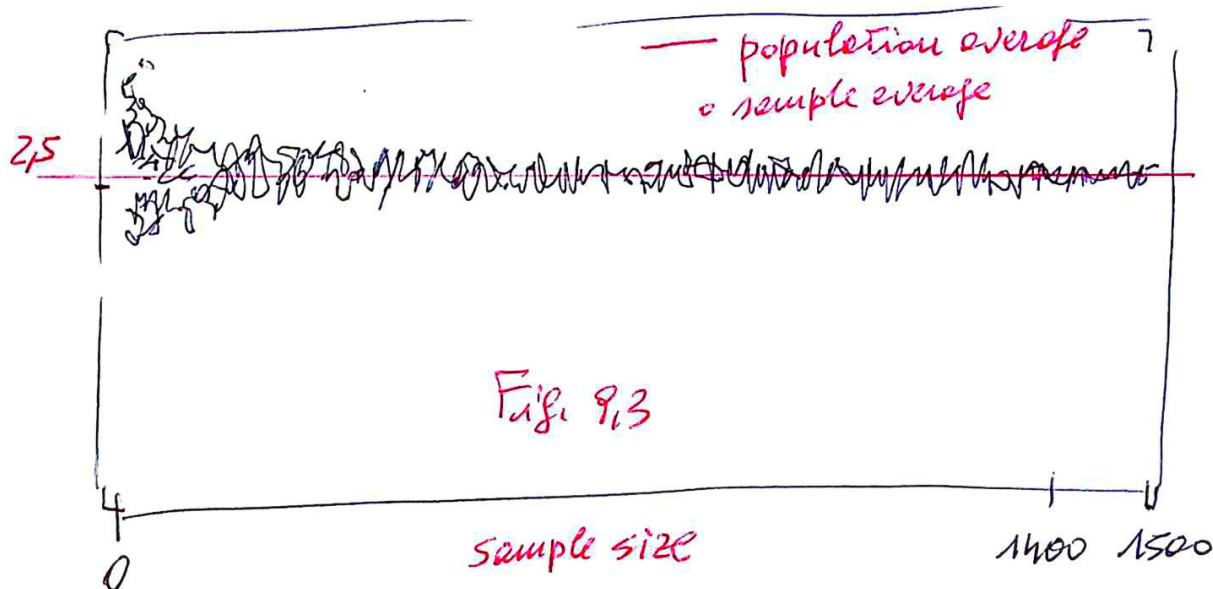 — population average
o sample average
2,5
Fig. 9,3
0
sample size
1400 1500